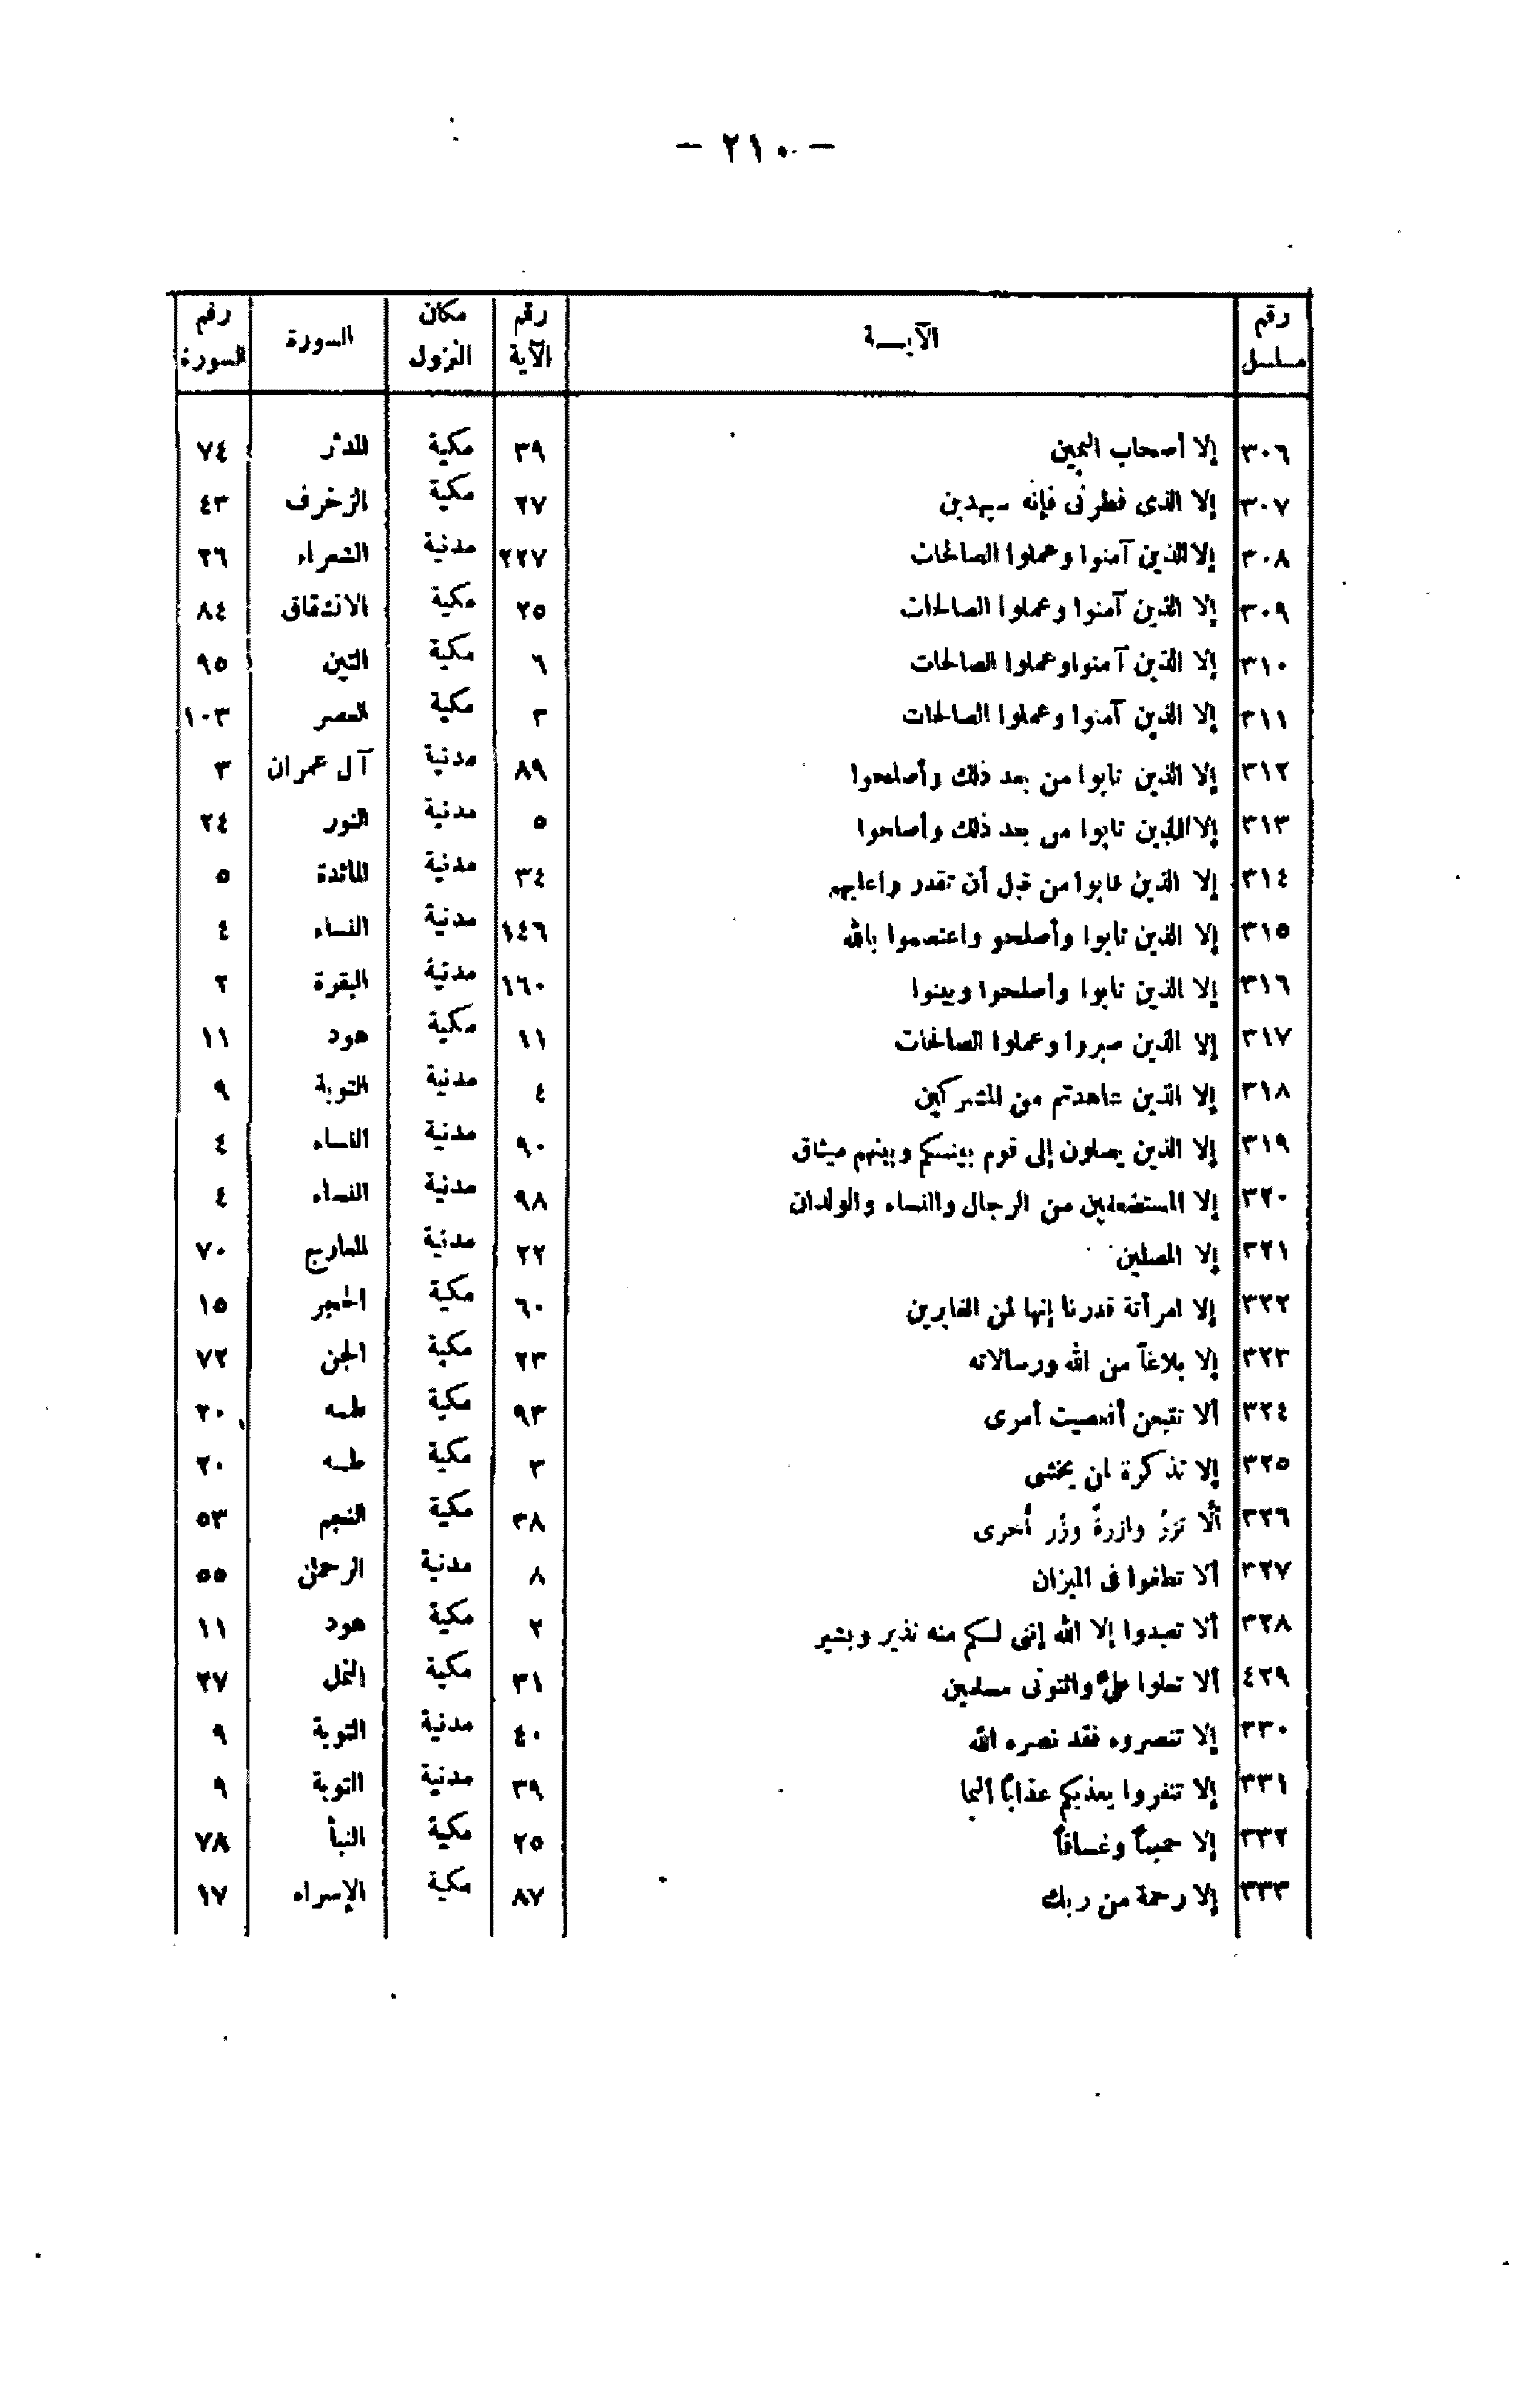 — ٢١٠ —
رقم مسلسل | الآيـــة | رقم الآية | مكان النزول | السورة | رقم السورة
٣٠٦ إلا أصحاب اليمين ٣٩ مكية المدثر ٧٤
٣٠٧ إلا الذى فطرنى فإنه سيهدين ٢٧ مكية الزخرف ٤٣
٣٠٨ إلا الذين آمنوا وعملوا الصالحات ٢٢٧ مدنية الشعراء ٢٦
٣٠٩ إلا الذين آمنوا وعملوا الصالحات ٢٥ مكية الانشقاق ٨٤
٣١٠ إلا الذين آمنوا وعملوا الصالحات ٦ مكية التين ٩٥
٣١١ إلا الذين آمنوا وعملوا الصالحات ٣ مكية العصر ١٠٣
٣١٢ إلا الذين تابوا من بعد ذلك وأصلحوا ٨٩ مدنية آل عمران ٣
٣١٣ إلا الذين تابوا من بعد ذلك وأصلحوا ٥ مدنية النور ٢٤
٣١٤ إلا الذين تابوا من قبل أن تقدروا عليهم ٣٤ مدنية المائدة ٥
٣١٥ إلا الذين تابوا وأصلحو واعتصموا بالله ١٤٦ مدنية النساء ٤
٣١٦ إلا الذين تابوا وأصلحوا وبينوا ١٦٠ مدنية البقرة ٢
٣١٧ إلا الذين صبروا وعملوا الصالحات ١١ مكية هود ١١
٣١٨ إلا الذين عاهدتم من المشركين ٤ مدنية التوبة ٩
٣١٩ إلا الذين يصلون إلى قوم بينكم وبينهم ميثاق ٩٠ مدنية النساء ٤
٣٢٠ إلا المستضعفين من الرجال والنساء والولدان ٩٨ مدنية النساء ٤
٣٢١ إلا المصلين ٢٢ مدنية المعارج ٧٠
٣٢٢ إلا امرأتة قدرنا إنها لمن الغابرين ٦٠ مكية الحجر ١٥
٣٢٣ إلا بلاغاً من الله ورسالاته ٢٣ مكية الجن ٧٢
٣٢٤ ألا تتبعن أفعصيت أمرى ٩٣ مكية طـه ٢٠
٣٢٥ إلا تذكرة لمن يخشى ٣ مكية طـه ٢٠
٣٢٦ ألَّا تزرُ وازرةٌ وزْر أُخرى ٣٨ مكية النجم ٥٣
٣٢٧ ألا تطغوا فى الميزان ٨ مدنية الرحمن ٥٥
٣٢٨ ألا تعبدوا إلا الله إننى لكم منه نذير وبشير ٢ مكية هود ١١
٤٢٩ ألا تعلوا علىَّ وائتونى مسلمين ٣١ مكية النمل ٢٧
٣٣٠ إلا تنصروه فقد نصره الله ٤٠ مدنية التوبة ٩
٣٣١ إلا تنفروا يعذبكم عذاباً أليما ٣٩ مدنية التوبة ٩
٣٣٢ إلا حميماً وغساقاً ٢٥ مكية النبأ ٧٨
٣٣٣ إلا رحمة من ربك ٨٧ مكية الإسراء ١٧